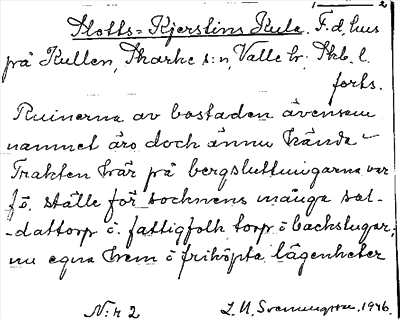 1 2
Slotts-Kjerstins Kula. F.d. hus
på Kullen, Skarke s:n, Valle hr. Skb. l.
forts.
Ruinerna av bostaden ävensom
namnet äro doch ännu kända
Trakten här på bergsluttningarna var
f.ö. ställe för socknens många sol-
-dattorp o. fattigfolk torp o backstugor;
nu egna hem o friköpta lägenheter
N:r 2 L. M. Svenungsson. 1946.